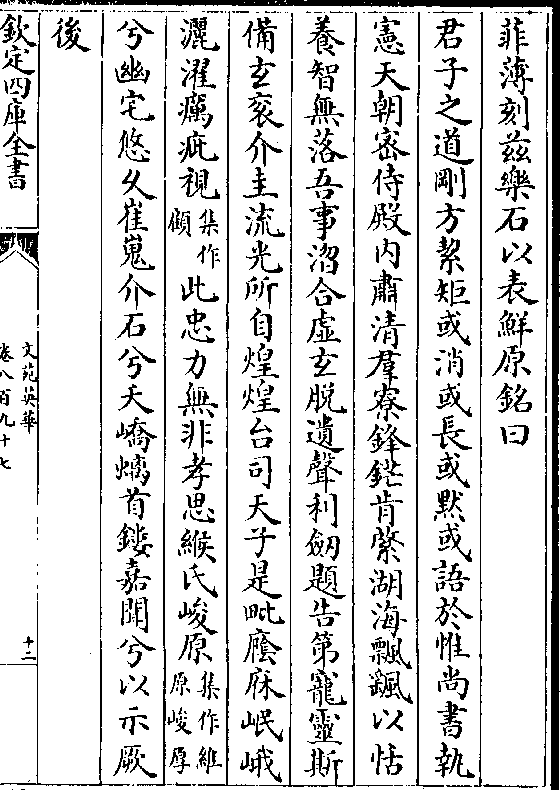 菲薄刻兹樂石以表鮮原銘曰
君子之道剛方絜矩或消或長或默或語於惟尚書執
憲天朝密侍殿内肅清羣寮鋒鋩肯綮湖海飄颻以恬
養智無落吾事㳷合虛玄脱遺聲利劒題告第寵靈斯
備玄衮介圭流光所自煌煌台司天子是毗廕庥岷峨
灑濯癘疵視集作顧此忠力無非孝思緱氏峻原集作維原峻厚
兮幽宅悠久崔嵬介石兮天嶠螭首鏤嘉聞兮以示厥
後
欽定四庫全書
文苑英華
卷八百九十七
十二